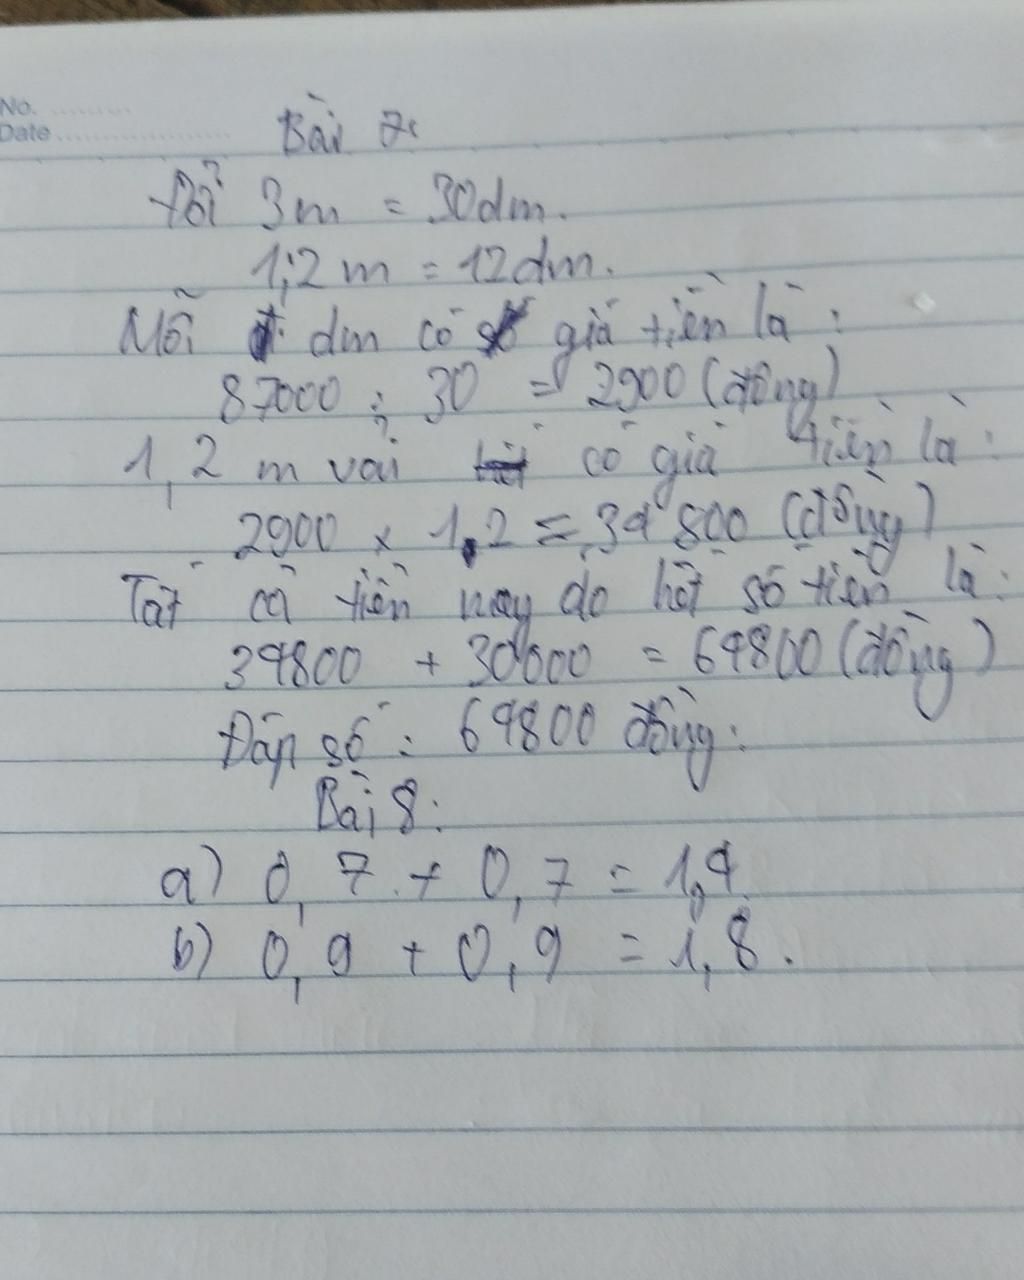 No. ..........
Date ....................
Bài 7:
Đổi 3m = 30dm.
1,2 m = 12dm.
Mỗi dm có giá tiền là :
87000 : 30 = 2900 (đồng)
1,2 m vải có giá tiền là :
2900 x 1,2 = 34 800 (đồng)
Tất cả tiền may đo hết số tiền là :
34800 + 30000 = 64800 (đồng)
Đáp số : 64800 đồng.
Bài 8:
a) 0,7 + 0,7 = 1,4.
b) 0,9 + 0,9 = 1,8.